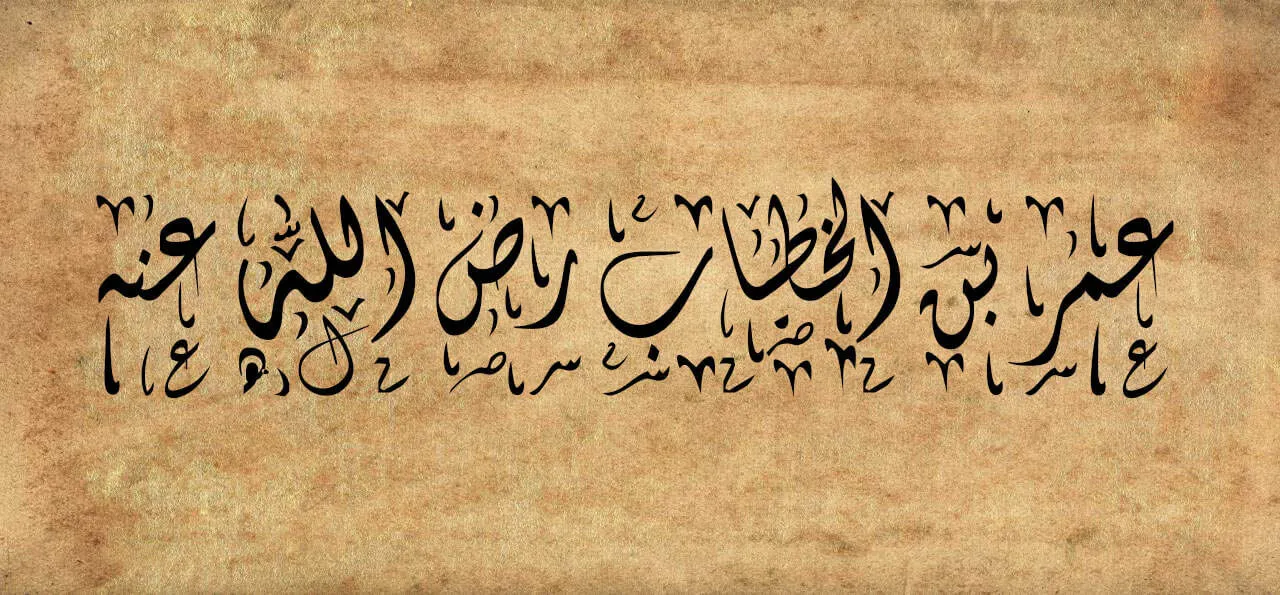 عمر بن الخطاب رض الله عنه